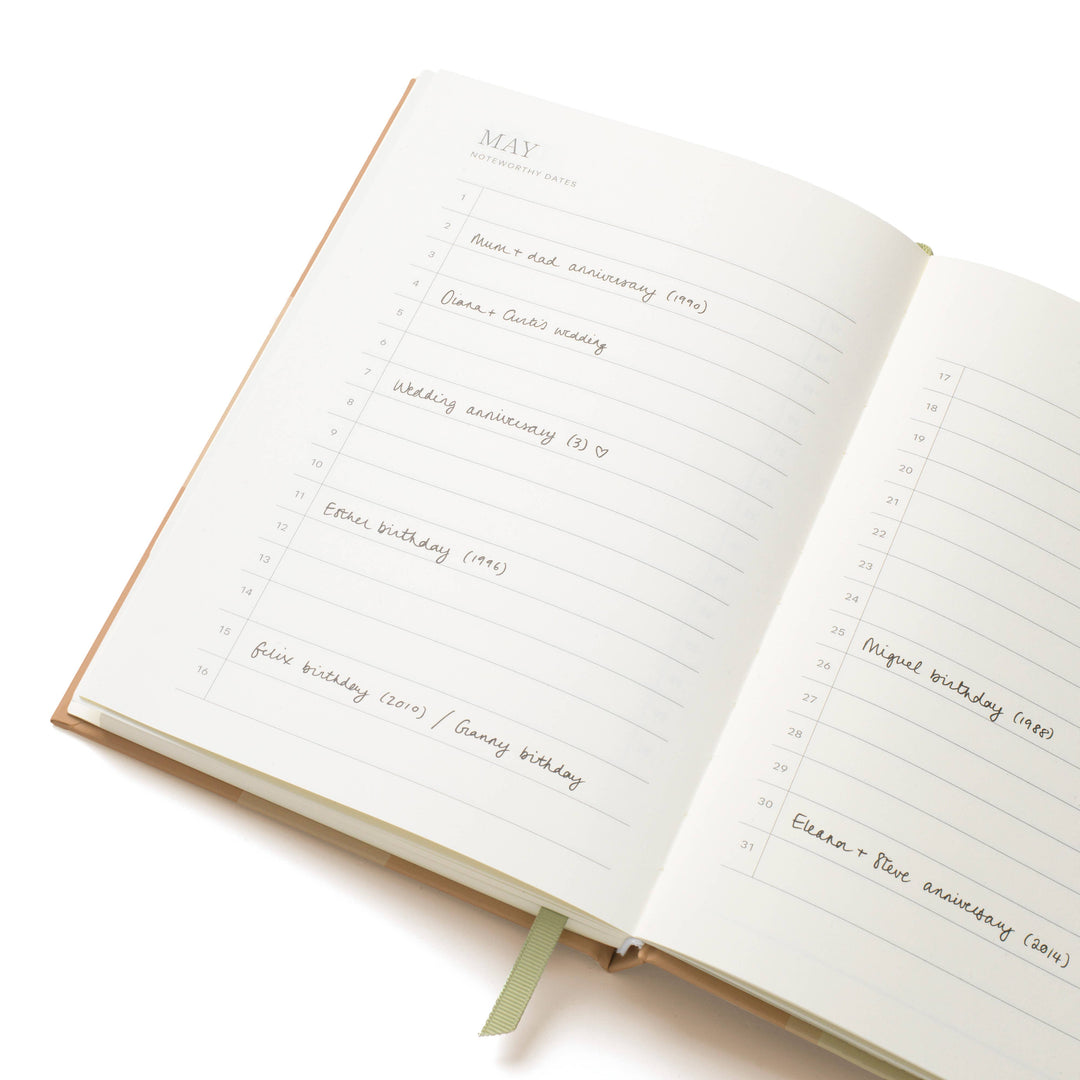 MAY
NOTEWORTHY DATES
1
2 Mum + dad anniversary (1990)
3
4 Diana + Curtis wedding
5
6
7 Wedding anniversary (3) ♡
8
9
10
11 Esther birthday (1996)
12
13
14
15 Felix birthday (2010) / Granny birthday
16
17
18
19
20
21
22
23
24
25 Miguel birthday (1988)
26
27
28
29
30 Eleanor + Steve anniversary (2014)
31